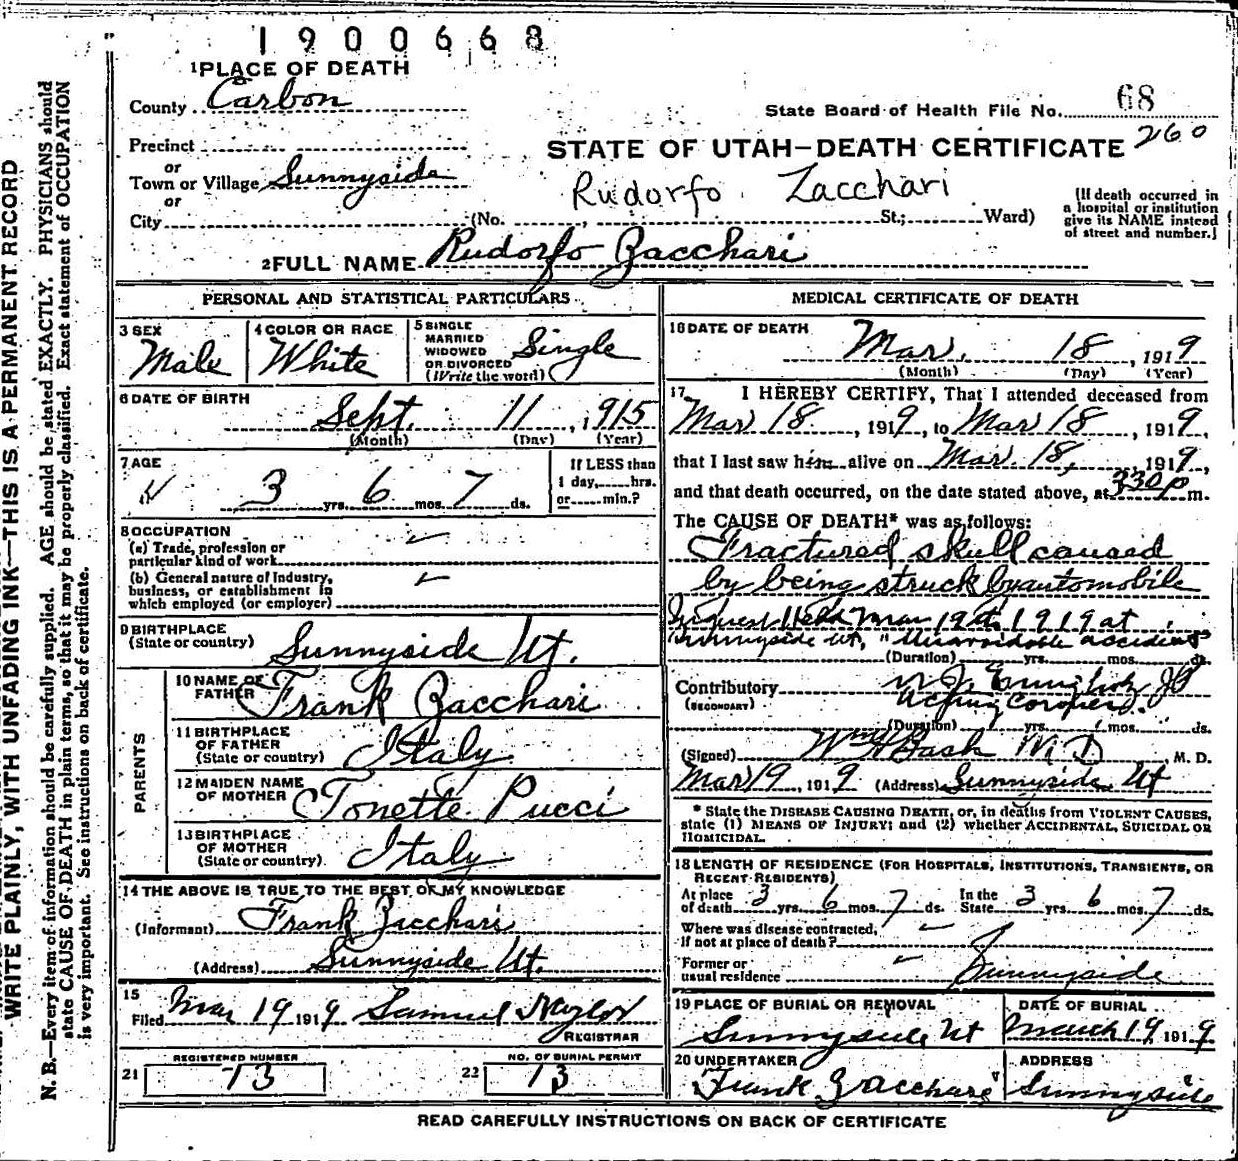 1900668
1 PLACE OF DEATH
County Carbon
State Board of Health File No. 68
Precinct
STATE OF UTAH—DEATH CERTIFICATE 260
or
Town or Village Sunnyside
Rudorfo Zacchari
or
City (No. St.; Ward)
(If death occurred in
a hospital or institution
give its NAME instead
of street and number.)
2 FULL NAME Rudorfo Zacchari
PERSONAL AND STATISTICAL PARTICULARS
3 SEX
Male
4 COLOR OR RACE
White
5 SINGLE
MARRIED
WIDOWED
OR DIVORCED
(Write the word)
Single
6 DATE OF BIRTH
Sept. 11, 1915
(Month) (Day) (Year)
7 AGE
3 yrs. 6 mos. 7 ds.
If LESS than
1 day, hrs.
or min.?
8 OCCUPATION
(a) Trade, profession or
particular kind of work
(b) General nature of Industry,
business, or establishment in
which employed (or employer)
9 BIRTHPLACE
(State or country) Sunnyside Ut.
PARENTS
10 NAME OF
FATHER Frank Zacchari
11 BIRTHPLACE
OF FATHER
(State or country) Italy
12 MAIDEN NAME
OF MOTHER Tonette Pucci
13 BIRTHPLACE
OF MOTHER
(State or country) Italy
14 THE ABOVE IS TRUE TO THE BEST OF MY KNOWLEDGE
(Informant) Frank Zacchari
(Address) Sunnyside Ut.
15
Filed Mar 19 1919 Samuel Naylor
REGISTRAR
REGISTERED NUMBER
21 13
NO. OF BURIAL PERMIT
22 13
MEDICAL CERTIFICATE OF DEATH
16 DATE OF DEATH
Mar. 18, 1919
(Month) (Day) (Year)
17 I HEREBY CERTIFY, That I attended deceased from
Mar 18, 1919, to Mar 18, 1919,
that I last saw him alive on Mar. 18, 1919,
and that death occurred, on the date stated above, at 330 p m.
The CAUSE OF DEATH* was as follows:
Fractured skull caused
by being struck by automobile
Inquest Held Mar 19th 1919 at
Sunnyside Ut, "Unavoidable accident"
(Duration) yrs. mos. ds.
Contributory
(SECONDARY)
Acting Coroner.
(Duration) yrs. mos. ds.
(Signed) M D, M. D.
Mar 19, 1919 (Address) Sunnyside Ut
* State the DISEASE CAUSING DEATH, or, in deaths from VIOLENT CAUSES,
state (1) MEANS OF INJURY; and (2) whether ACCIDENTAL, SUICIDAL OR
HOMICIDAL.
18 LENGTH OF RESIDENCE (FOR HOSPITALS, INSTITUTIONS, TRANSIENTS, OR
RECENT RESIDENTS)
At place
of death 3 yrs. 6 mos. 7 ds.
In the
State 3 yrs. 6 mos. 7 ds.
Where was disease contracted,
if not at place of death?
Former or
usual residence Sunnyside
19 PLACE OF BURIAL OR REMOVAL
Sunnyside Ut
DATE OF BURIAL
March 19 1919
20 UNDERTAKER
Frank Zacchari
ADDRESS
Sunnyside
READ CAREFULLY INSTRUCTIONS ON BACK OF CERTIFICATE
WRITE PLAINLY, WITH UNFADING INK—THIS IS A PERMANENT RECORD
N. B.—Every item of information should be carefully supplied. AGE should be stated EXACTLY. PHYSICIANS should
state CAUSE OF DEATH in plain terms, so that it may be properly classified. Exact statement of OCCUPATION
is very important. See instructions on back of certificate.